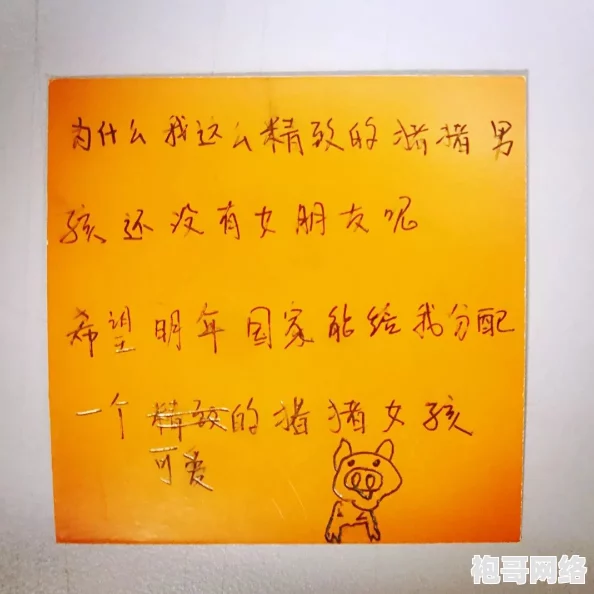 为什么我这么精致的猪猪男
孩还没有女朋友呢
希望明年国家能给我分配
一个精致的猪猪女孩
可爱
袍哥网络